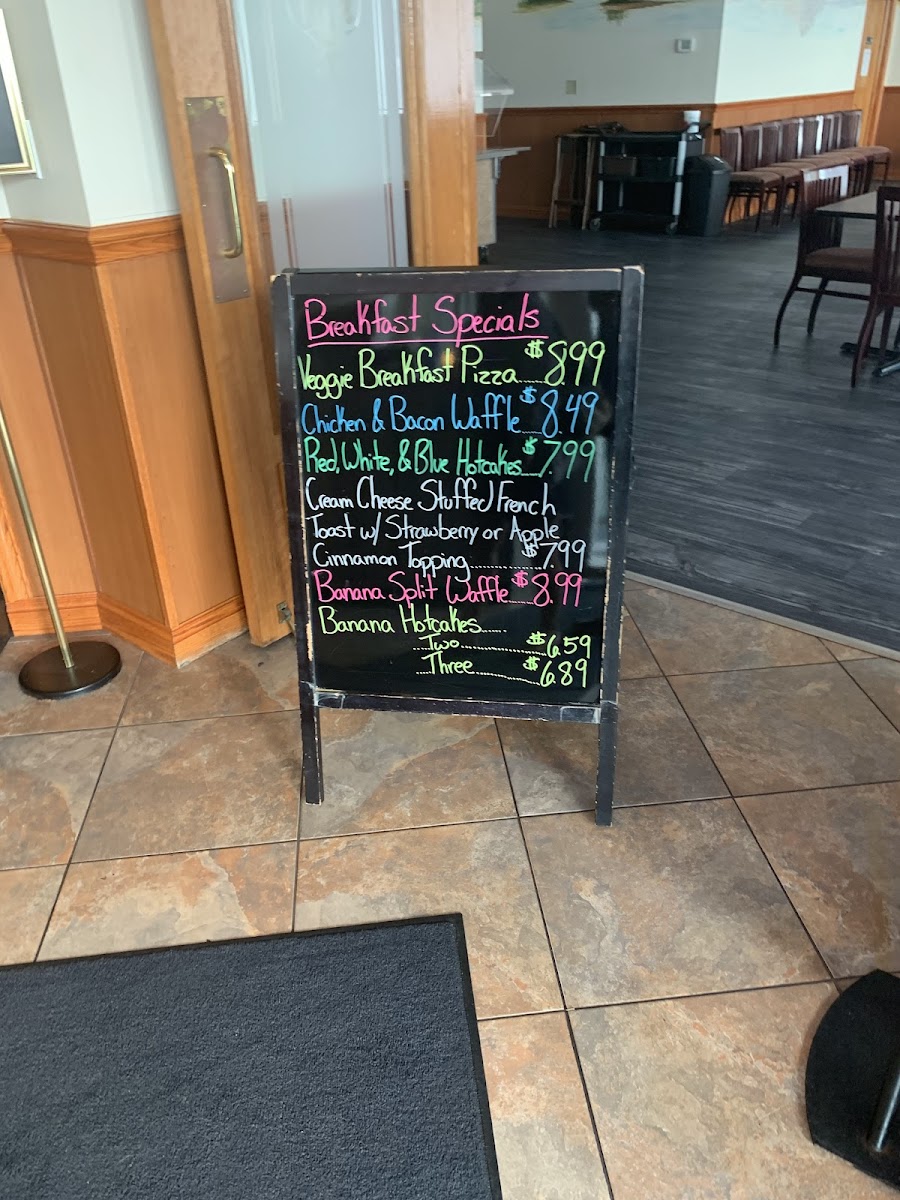 Breakfast Specials
Veggie Breakfast Pizza.....$8.99
Chicken & Bacon Waffle....$8.49
Red, White, & Blue Hotcakes....$7.99
Cream Cheese Stuffed French
Toast w/ Strawberry or Apple
Cinnamon Topping..............$7.99
Banana Split Waffle.....$8.99
Banana Hotcakes......
...Two..............$6.59
...Three............$6.89